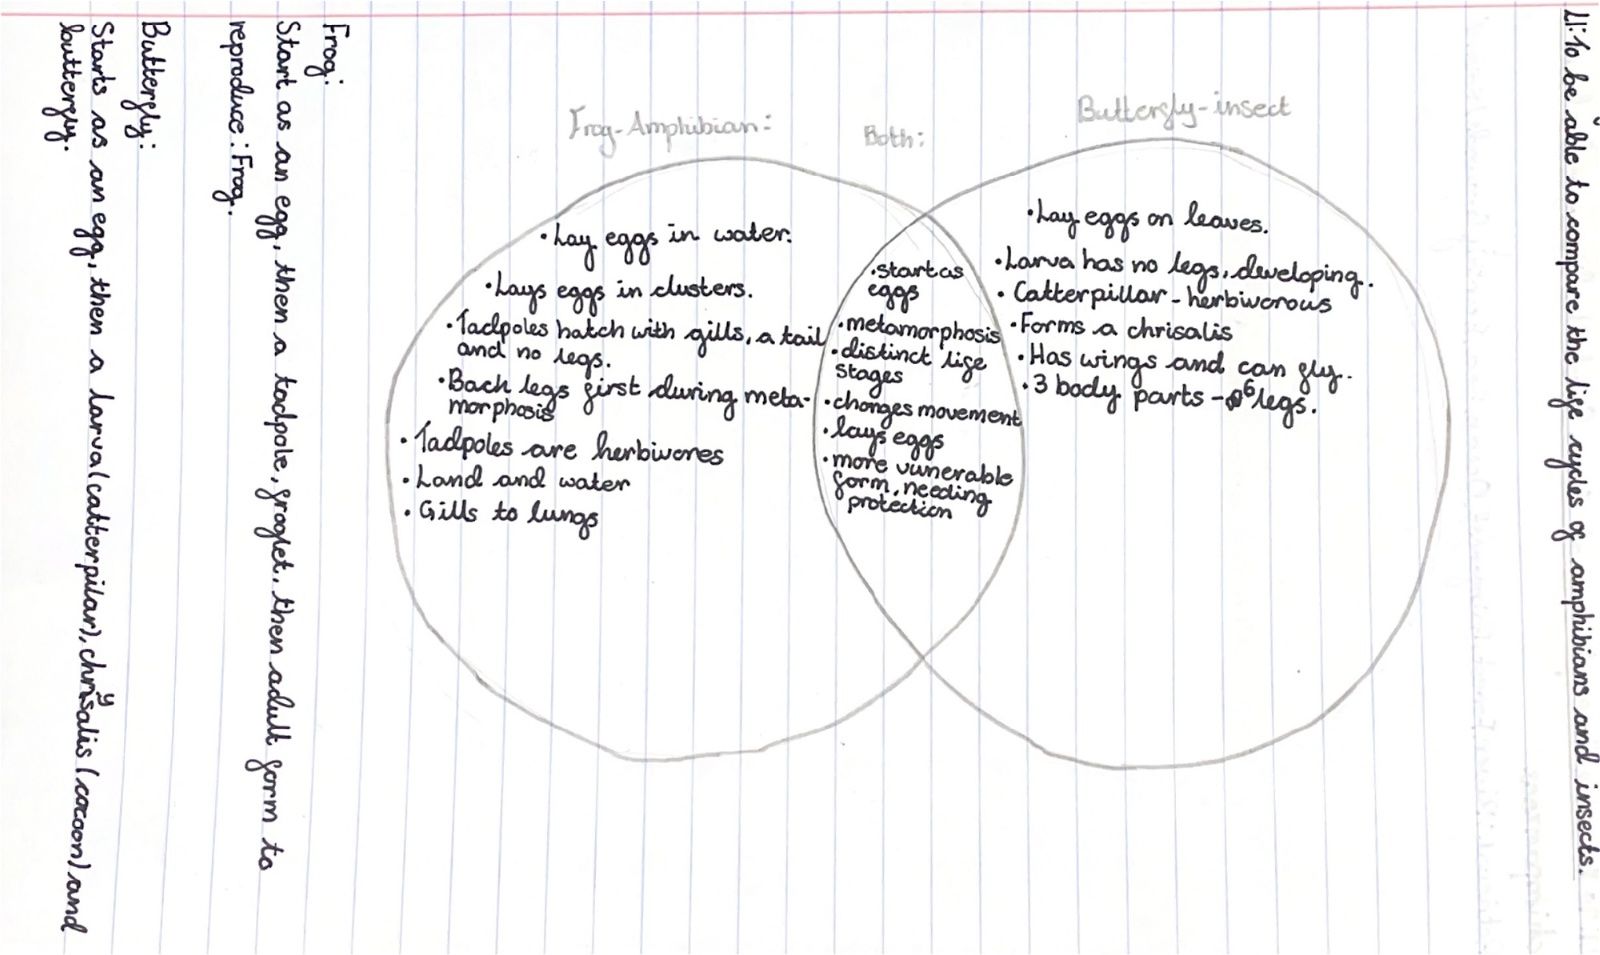 LI: To be able to compare the life cycles of amphibians and insects.
Frog-Amphibian:
Both:
Butterfly-insect
•Lay eggs in water.
•Lays eggs in clusters.
•Tadpoles hatch with gills, a tail
and no legs.
•Back legs first during meta-
morphosis
•Tadpoles are herbivores
•Land and water
•Gills to lungs
•start as
eggs
•metamorphosis
•distinct life
stages
•changes movement
•lays eggs
•more vunerable
form, needing
protection
•Lay eggs on leaves.
•Larva has no legs, developing.
•Catterpillar-herbivorous
•Forms a chrisalis
•Has wings and can fly.
•3 body parts - 6 legs.
Frog:
Start as an egg, then a tadpole, froglet, then adult form to
reproduce: Frog.
Butterfly:
Starts as an egg, then a larva (catterpilar), chrysalis (cocoon) and
butterfly.